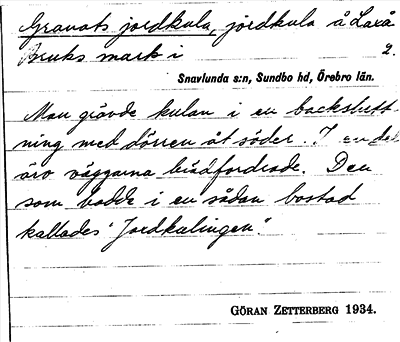 Granats jordkula, jordkula å Laxå
Bruks mark i 2.
Snavlunda s:n, Sundbo hd, Örebro län.
Man grävde kulan i en backslutt-
ning med dörren åt söder. I en del
äro väggarna brädfordrade. Den
som bodde i en sådan bostad
kallades "Jordkulingen".
GÖRAN ZETTERBERG 1934.